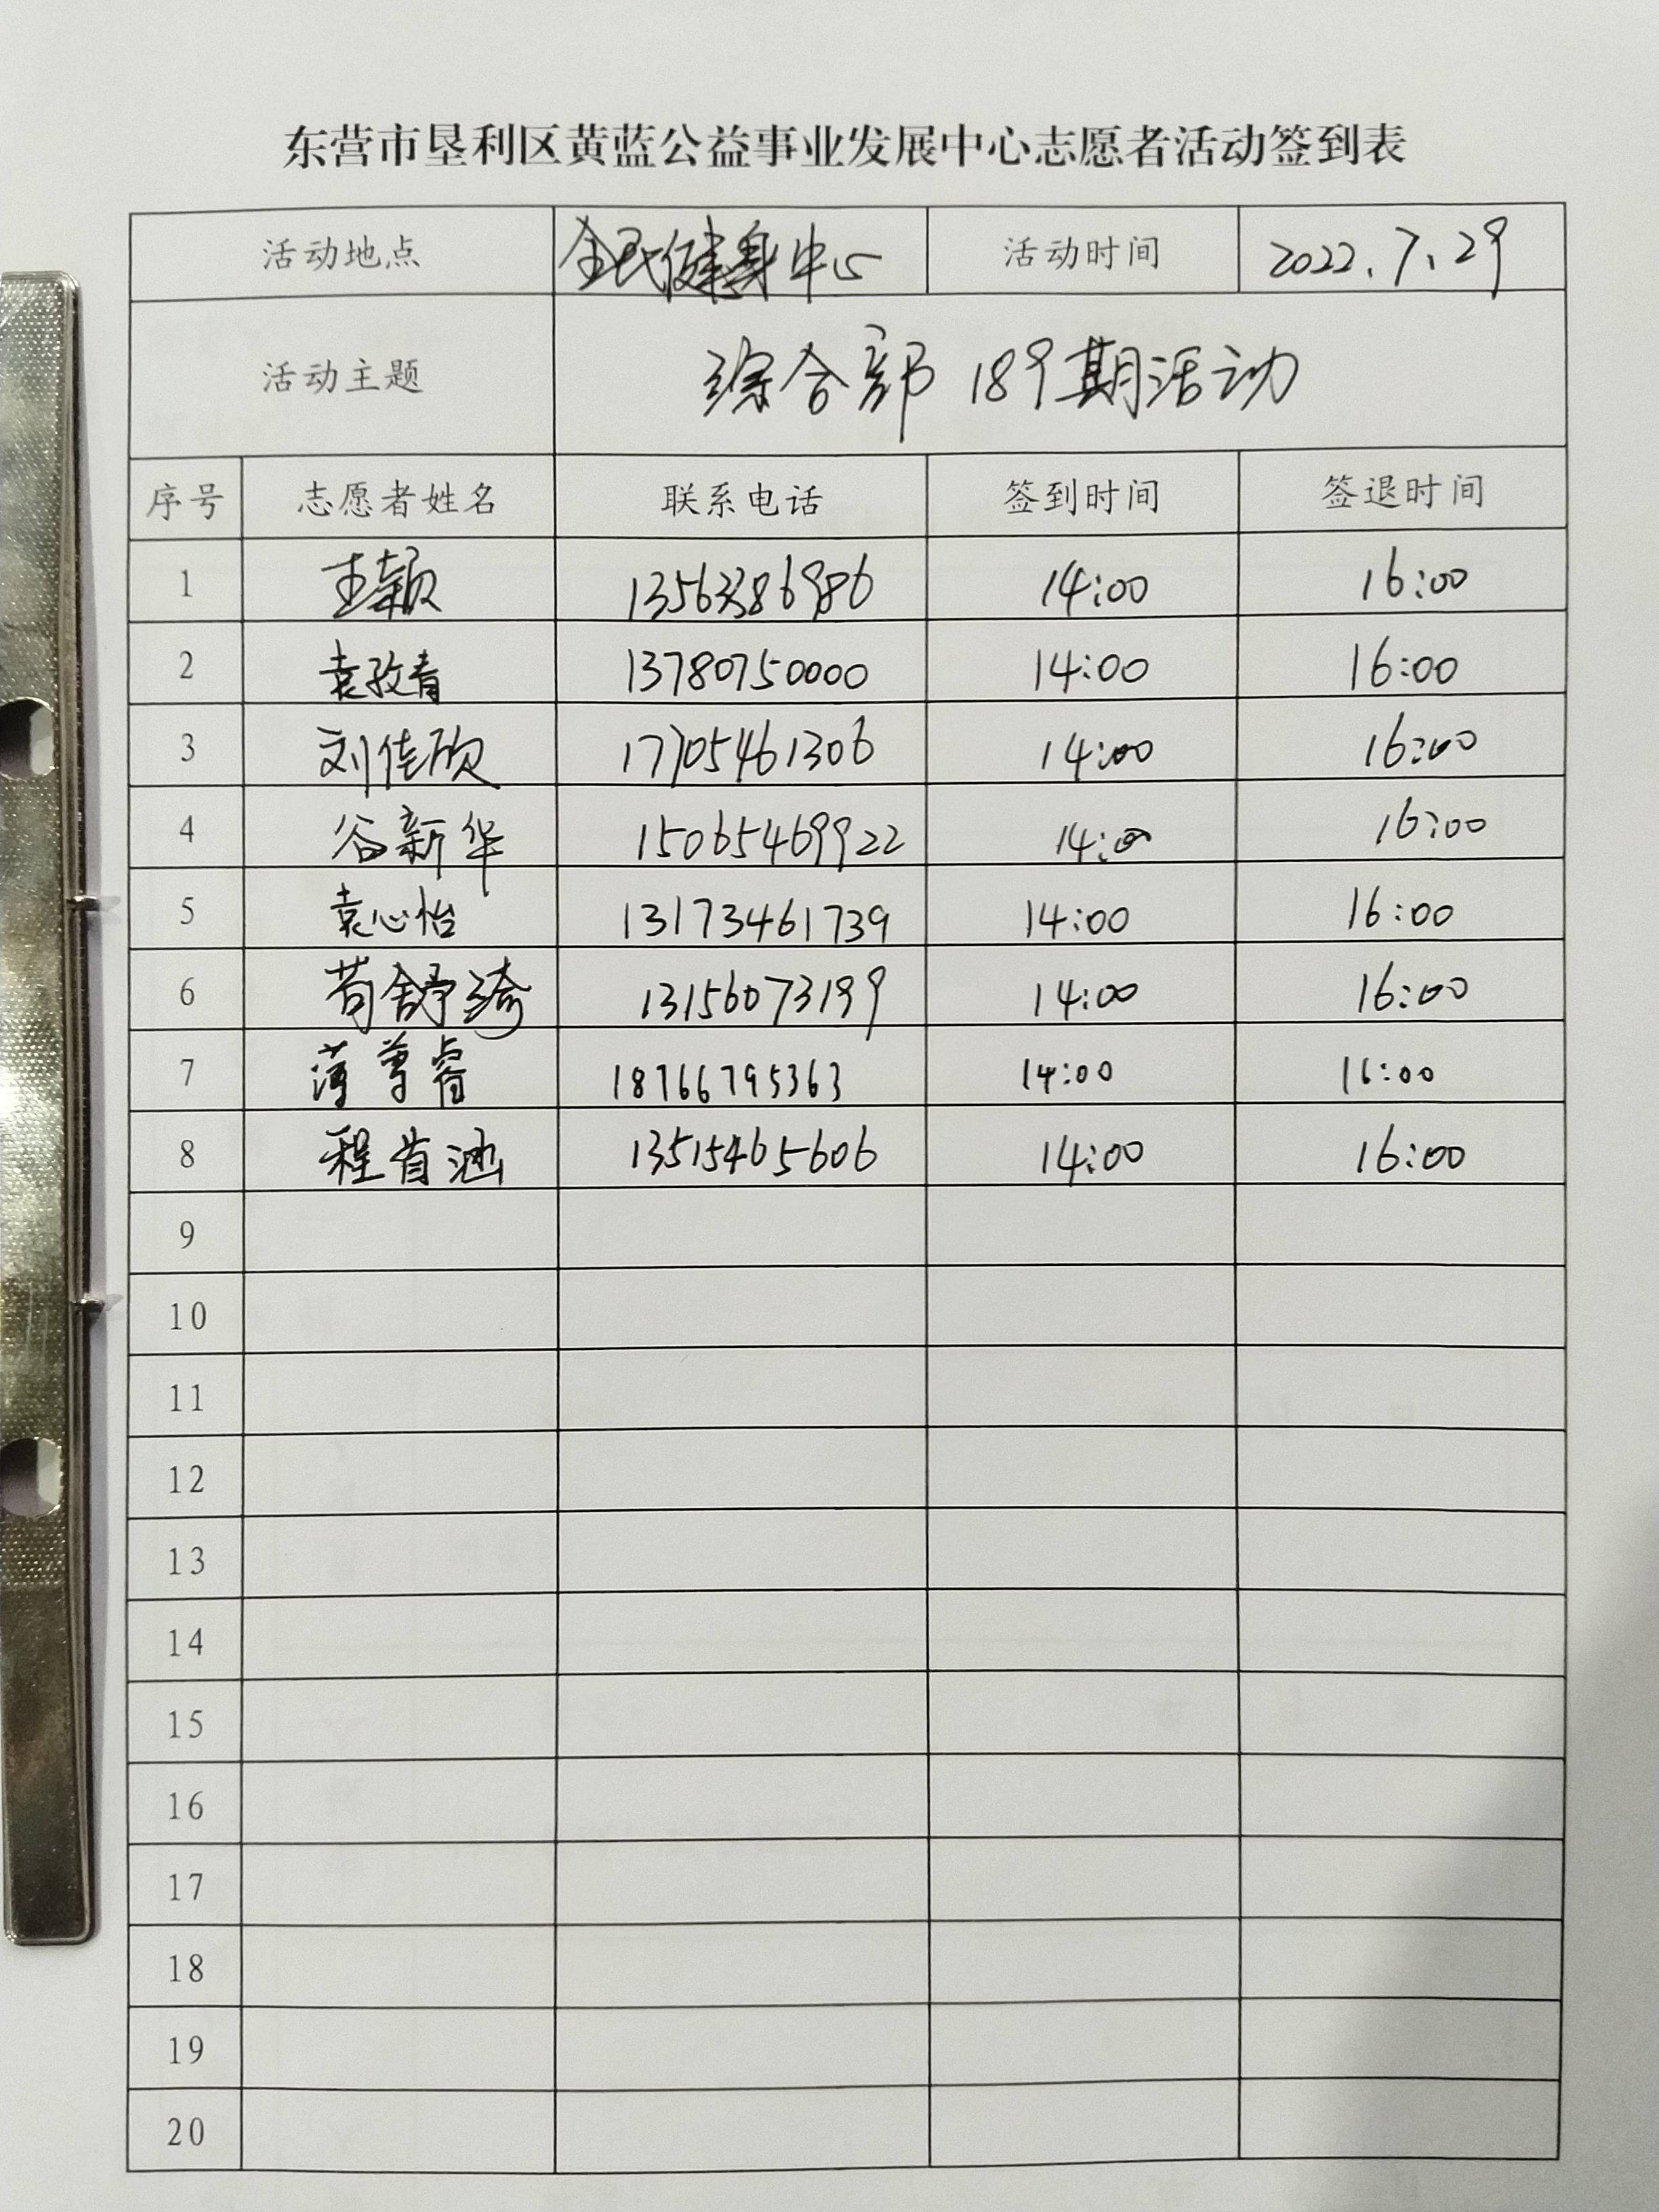 东营市垦利区黄蓝公益事业发展中心志愿者活动签到表
活动地点 全民健身中心 活动时间 2022.7.29
活动主题 综合部 189期活动
序号 志愿者姓名 联系电话 签到时间 签退时间
1 王颖 13563386986 14:00 16:00
2 袁孜青 13780750000 14:00 16:00
3 刘佳欣 17705461306 14:00 16:00
4 谷新华 15065469922 14:00 16:00
5 袁心怡 13173461739 14:00 16:00
6 苟舒绮 13156073199 14:00 16:00
7 薄尊睿 18766795363 14:00 16:00
8 程肖涵 13515465606 14:00 16:00
9
10
11
12
13
14
15
16
17
18
19
20